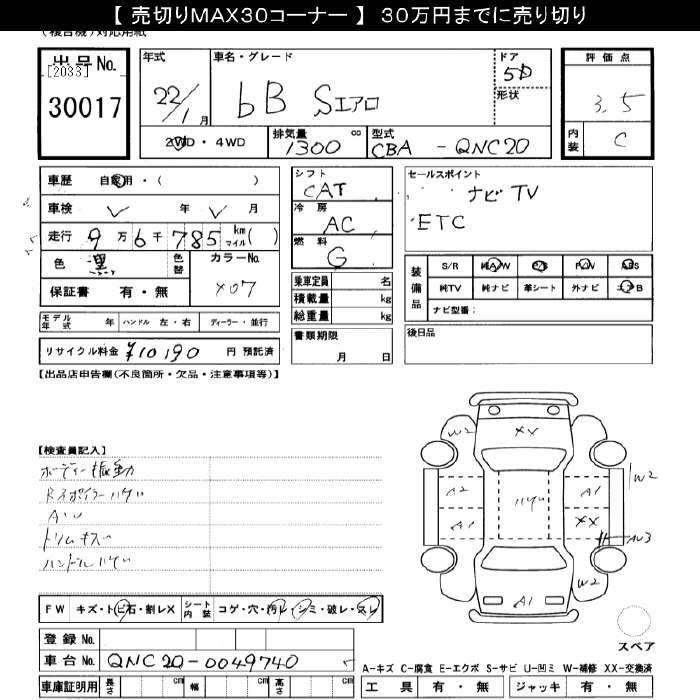 【 売切りMAX30コーナー 】 30万円までに売り切り
(複合機)対応用紙
出品No.
[2033]
30017
年式
22/1月
車名・グレード
bB Sエアロ
ドア
5D
形状
評価点
3.5
内装
C
2WD・4WD
排気量
1300 cc
型式
CBA - QNC20
車歴 自家用・( )
車検 年 月
走行 9万6千785 km マイル( )
色 黒 色替 カラーNo. X07
保証書 有・無
モデル年式 年 ハンドル 左・右 ディーラー・並行
リサイクル料金 ¥10190 円 預託済
シフト
CAT
冷房
AC
燃料
G
乗車定員 名
積載量 kg
総重量 kg
書類期限
月 日
セールスポイント
ナビ TV
ETC
装備品
S/R 純A/W P/S P/W ABS
純TV 純ナビ 革シート 外ナビ エアB
ナビ型番:
後日品
【出品店申告欄(不良箇所・欠品・注意事項等)】
【検査員記入】
ボディー振動
Rスポイラーハゲ
AU
トリムキズ
ハンドルハゲ
W2
XX
A2
ハゲ
A1
W2
A1
XX
AU3
W2
A1
スペア
FW キズ・トビ石・割レX シート内装 コゲ・穴・汚レ・シミ・破レ・スレ
登録No.
車台No. QNC20-0049740
車庫証明用 長さ cm 幅 cm 高さ cm
A-キズ C-腐食 E-エクボ S-サビ U-凹ミ W-補修 XX-交換済
工具 有・無 ジャッキ 有・無